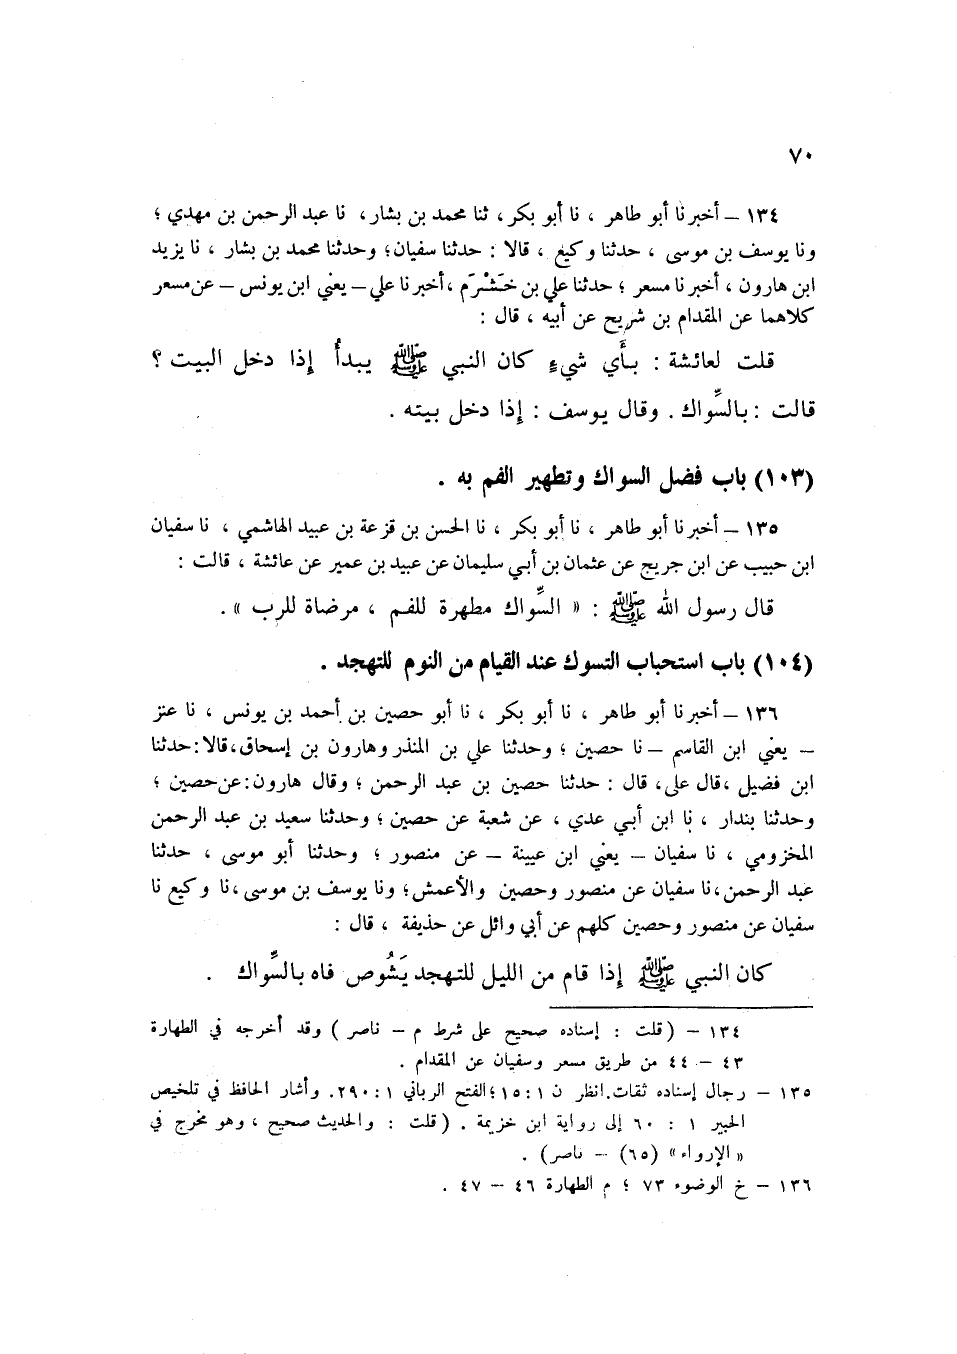 ٧٠
١٣٤ – أخبرنا أبو طاهر ، نا أبو بكر ، ثنا محمد بن بشار ، نا عبد الرحمن بن مهدي ؛
ونا يوسف بن موسى ، حدثنا وكيع ، قالا : حدثنا سفيان ؛ وحدثنا محمد بن بشار ، نا يزيد
ابن هارون ، أخبرنا مسعر ؛ حدثنا علي بن خَشْرَم ، أخبرنا علي – يعني ابن يونس – عن مسعر
كلاهما عن المقدام بن شريح عن أبيه ، قال :
قلت لعائشة : بأَي شيءٍ كان النبي ﷺ يبدأُ إذا دخل البيت ؟
قالت : بالسِّواك . وقال يوسف : إذا دخل بيته .
(١٠٣) باب فضل السواك وتطهير الفم به .
١٣٥ – أخبرنا أبو طاهر ، نا أبو بكر ، نا الحسن بن قزعة بن عبيد الهاشمي ، نا سفيان
ابن حبيب عن ابن جريج عن عثمان بن أبي سليمان عن عبيد بن عمير عن عائشة ، قالت :
قال رسول الله ﷺ : « السِّواك مطهرة للفم ، مرضاة للرب » .
(١٠٤) باب استحباب التسوك عند القيام من النوم للتهجد .
١٣٦ – أخبرنا أبو طاهر ، نا أبو بكر ، نا أبو حصين بن أحمد بن يونس ، نا عنز
– يعني ابن القاسم – نا حصين ؛ وحدثنا علي بن المنذر وهارون بن إسحاق ، قالا : حدثنا
ابن فضيل ، قال على ، قال : حدثنا حصين بن عبد الرحمن ؛ وقال هارون : عن حصين ؛
وحدثنا بندار ، نا ابن أبي عدي ، عن شعبة عن حصين ؛ وحدثنا سعيد بن عبد الرحمن
المخزومي ، نا سفيان – يعني ابن عيينة – عن منصور ؛ وحدثنا أبو موسى ، حدثنا
عبد الرحمن ، نا سفيان عن منصور وحصين والأعمش ؛ ونا يوسف بن موسى ، نا وكيع نا
سفيان عن منصور وحصين كلهم عن أبي وائل عن حذيفة ، قال :
كان النبي ﷺ إذا قام من الليل للتهجد يَشُوص فاه بالسِّواك .
١٣٤ – (قلت : إسناده صحيح على شرط م – ناصر ) وقد أخرجه في الطهارة
٤٣ – ٤٤ من طريق مسعر وسفيان عن المقدام .
١٣٥ – رجال إسناده ثقات . انظر ن ١ : ١٥ ؛ الفتح الرباني ١ : ٢٩٠ . وأشار الحافظ في تلخيص
الحبير ١ : ٦٠ إلى رواية ابن خزيمة . (قلت : والحديث صحيح ، وهو مخرج في
« الإرواء » (٦٥) – ناصر) .
١٣٦ – خ الوضوء ٧٣ ؛ م الطهارة ٤٦ – ٤٧ .